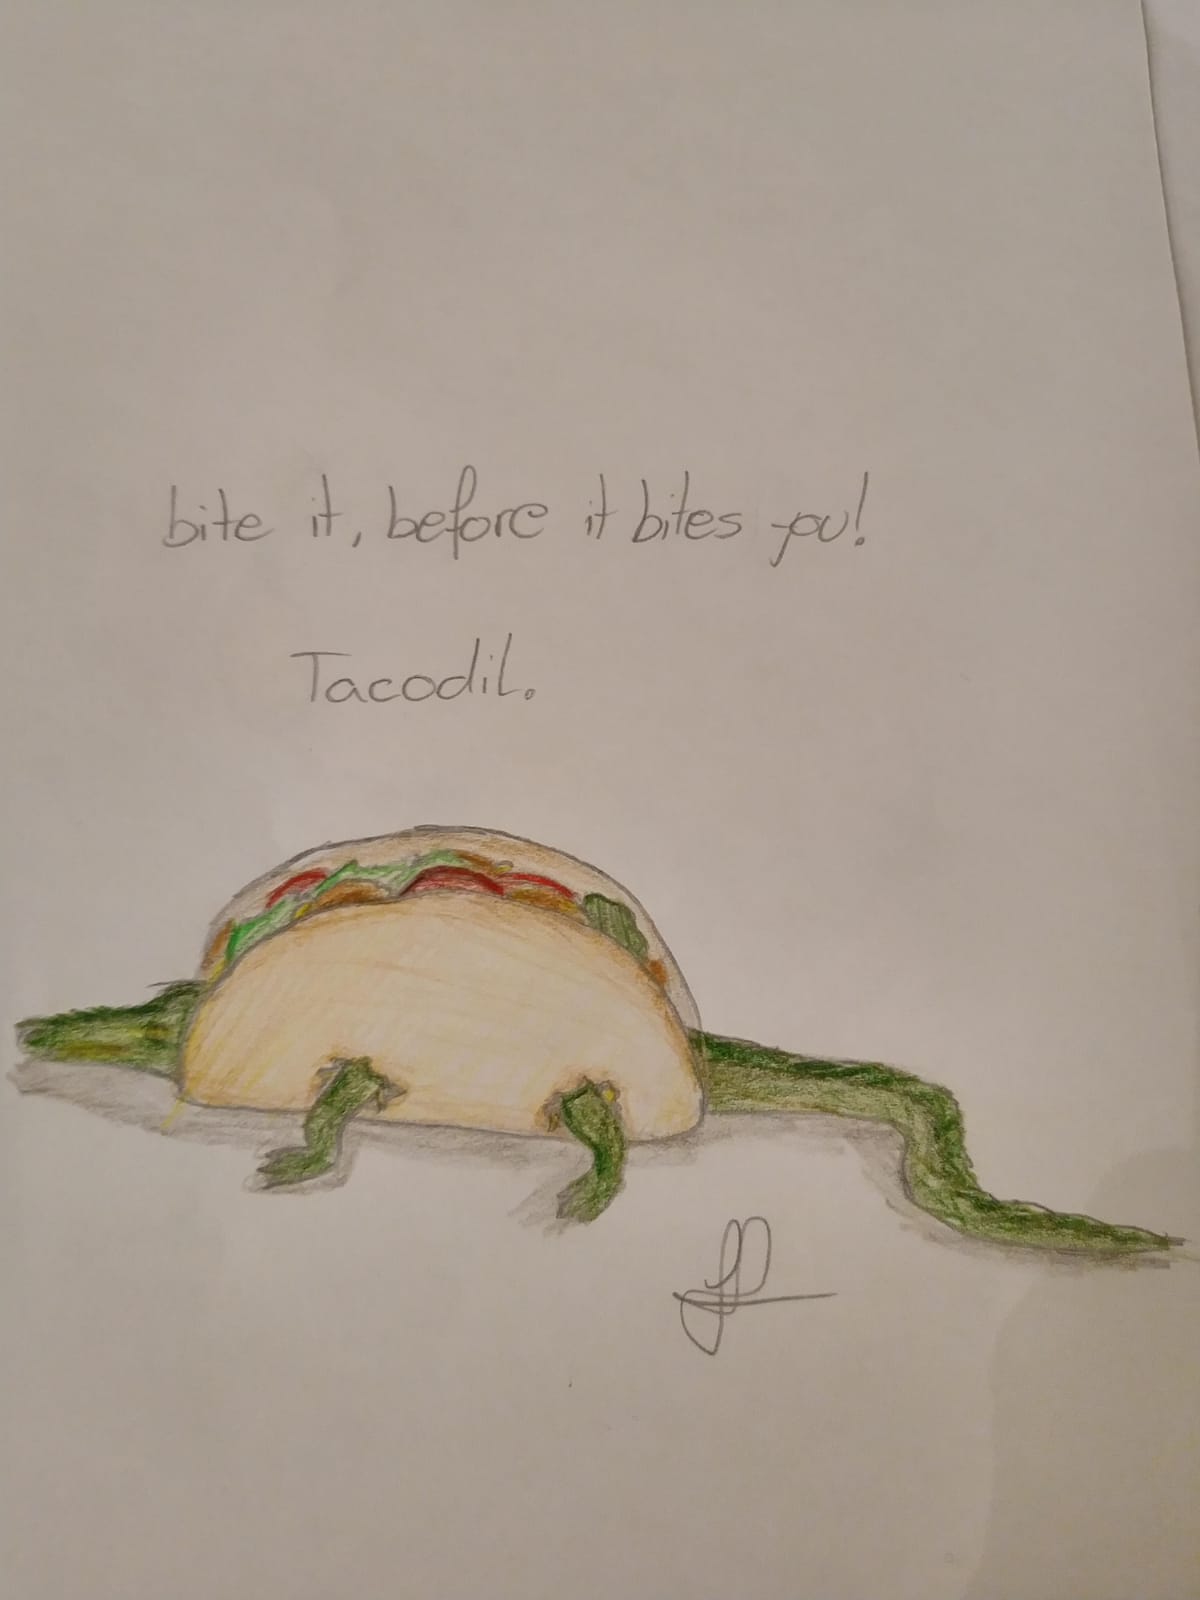 bite it, before it bites you!
Tacodil.